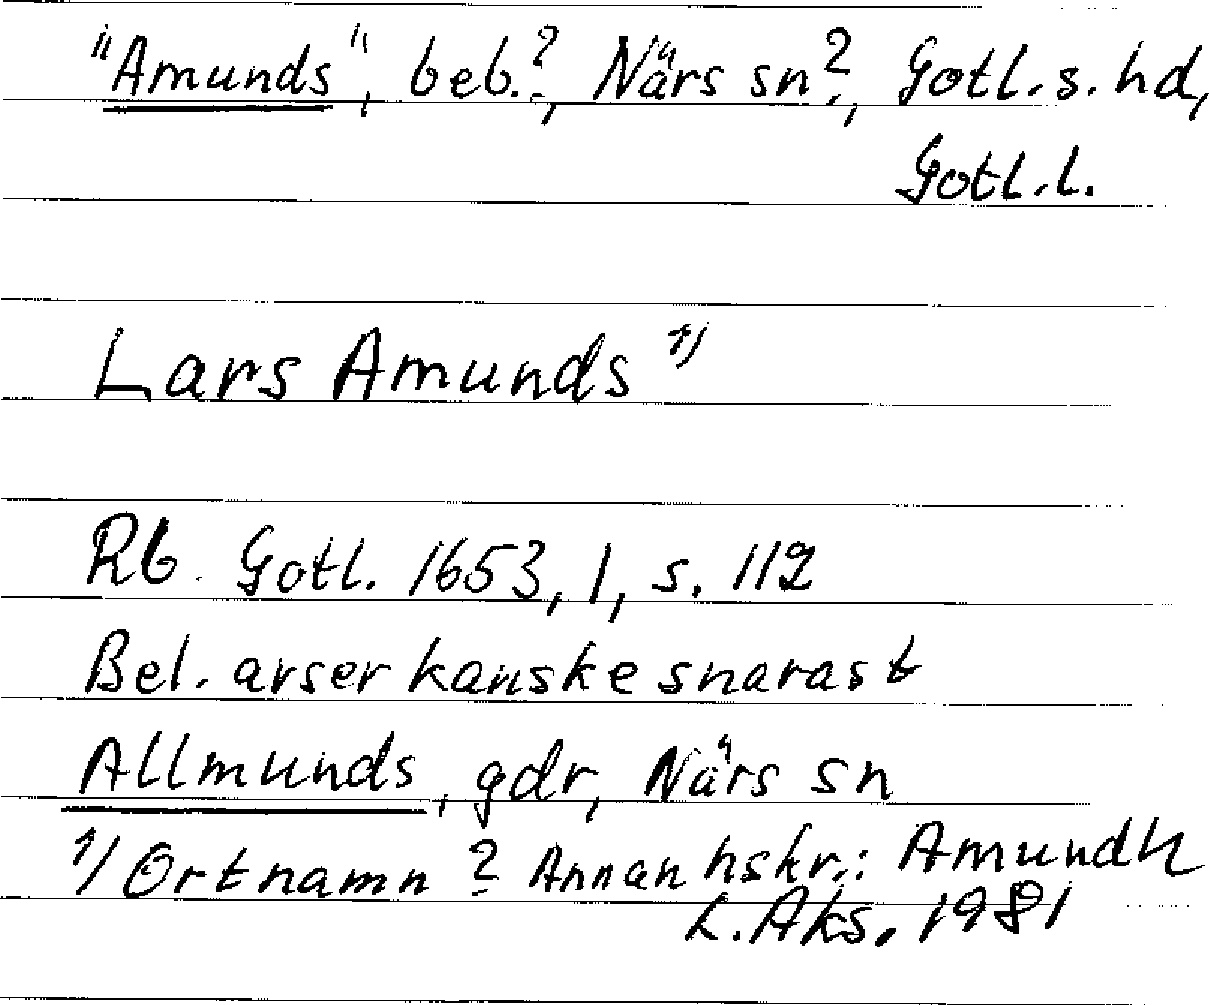 "Amunds", beb.?, Närs sn?, Gotl. s. hd,
Gotl. l.
Lars Amunds 1)
Rb. Gotl. 1653, 1, s. 112
Bel. avser kanske snarast
Allmunds, gdr, Närs sn
1) Ortnamn? Annan hskr.: Amundh
L. Aks. 1981